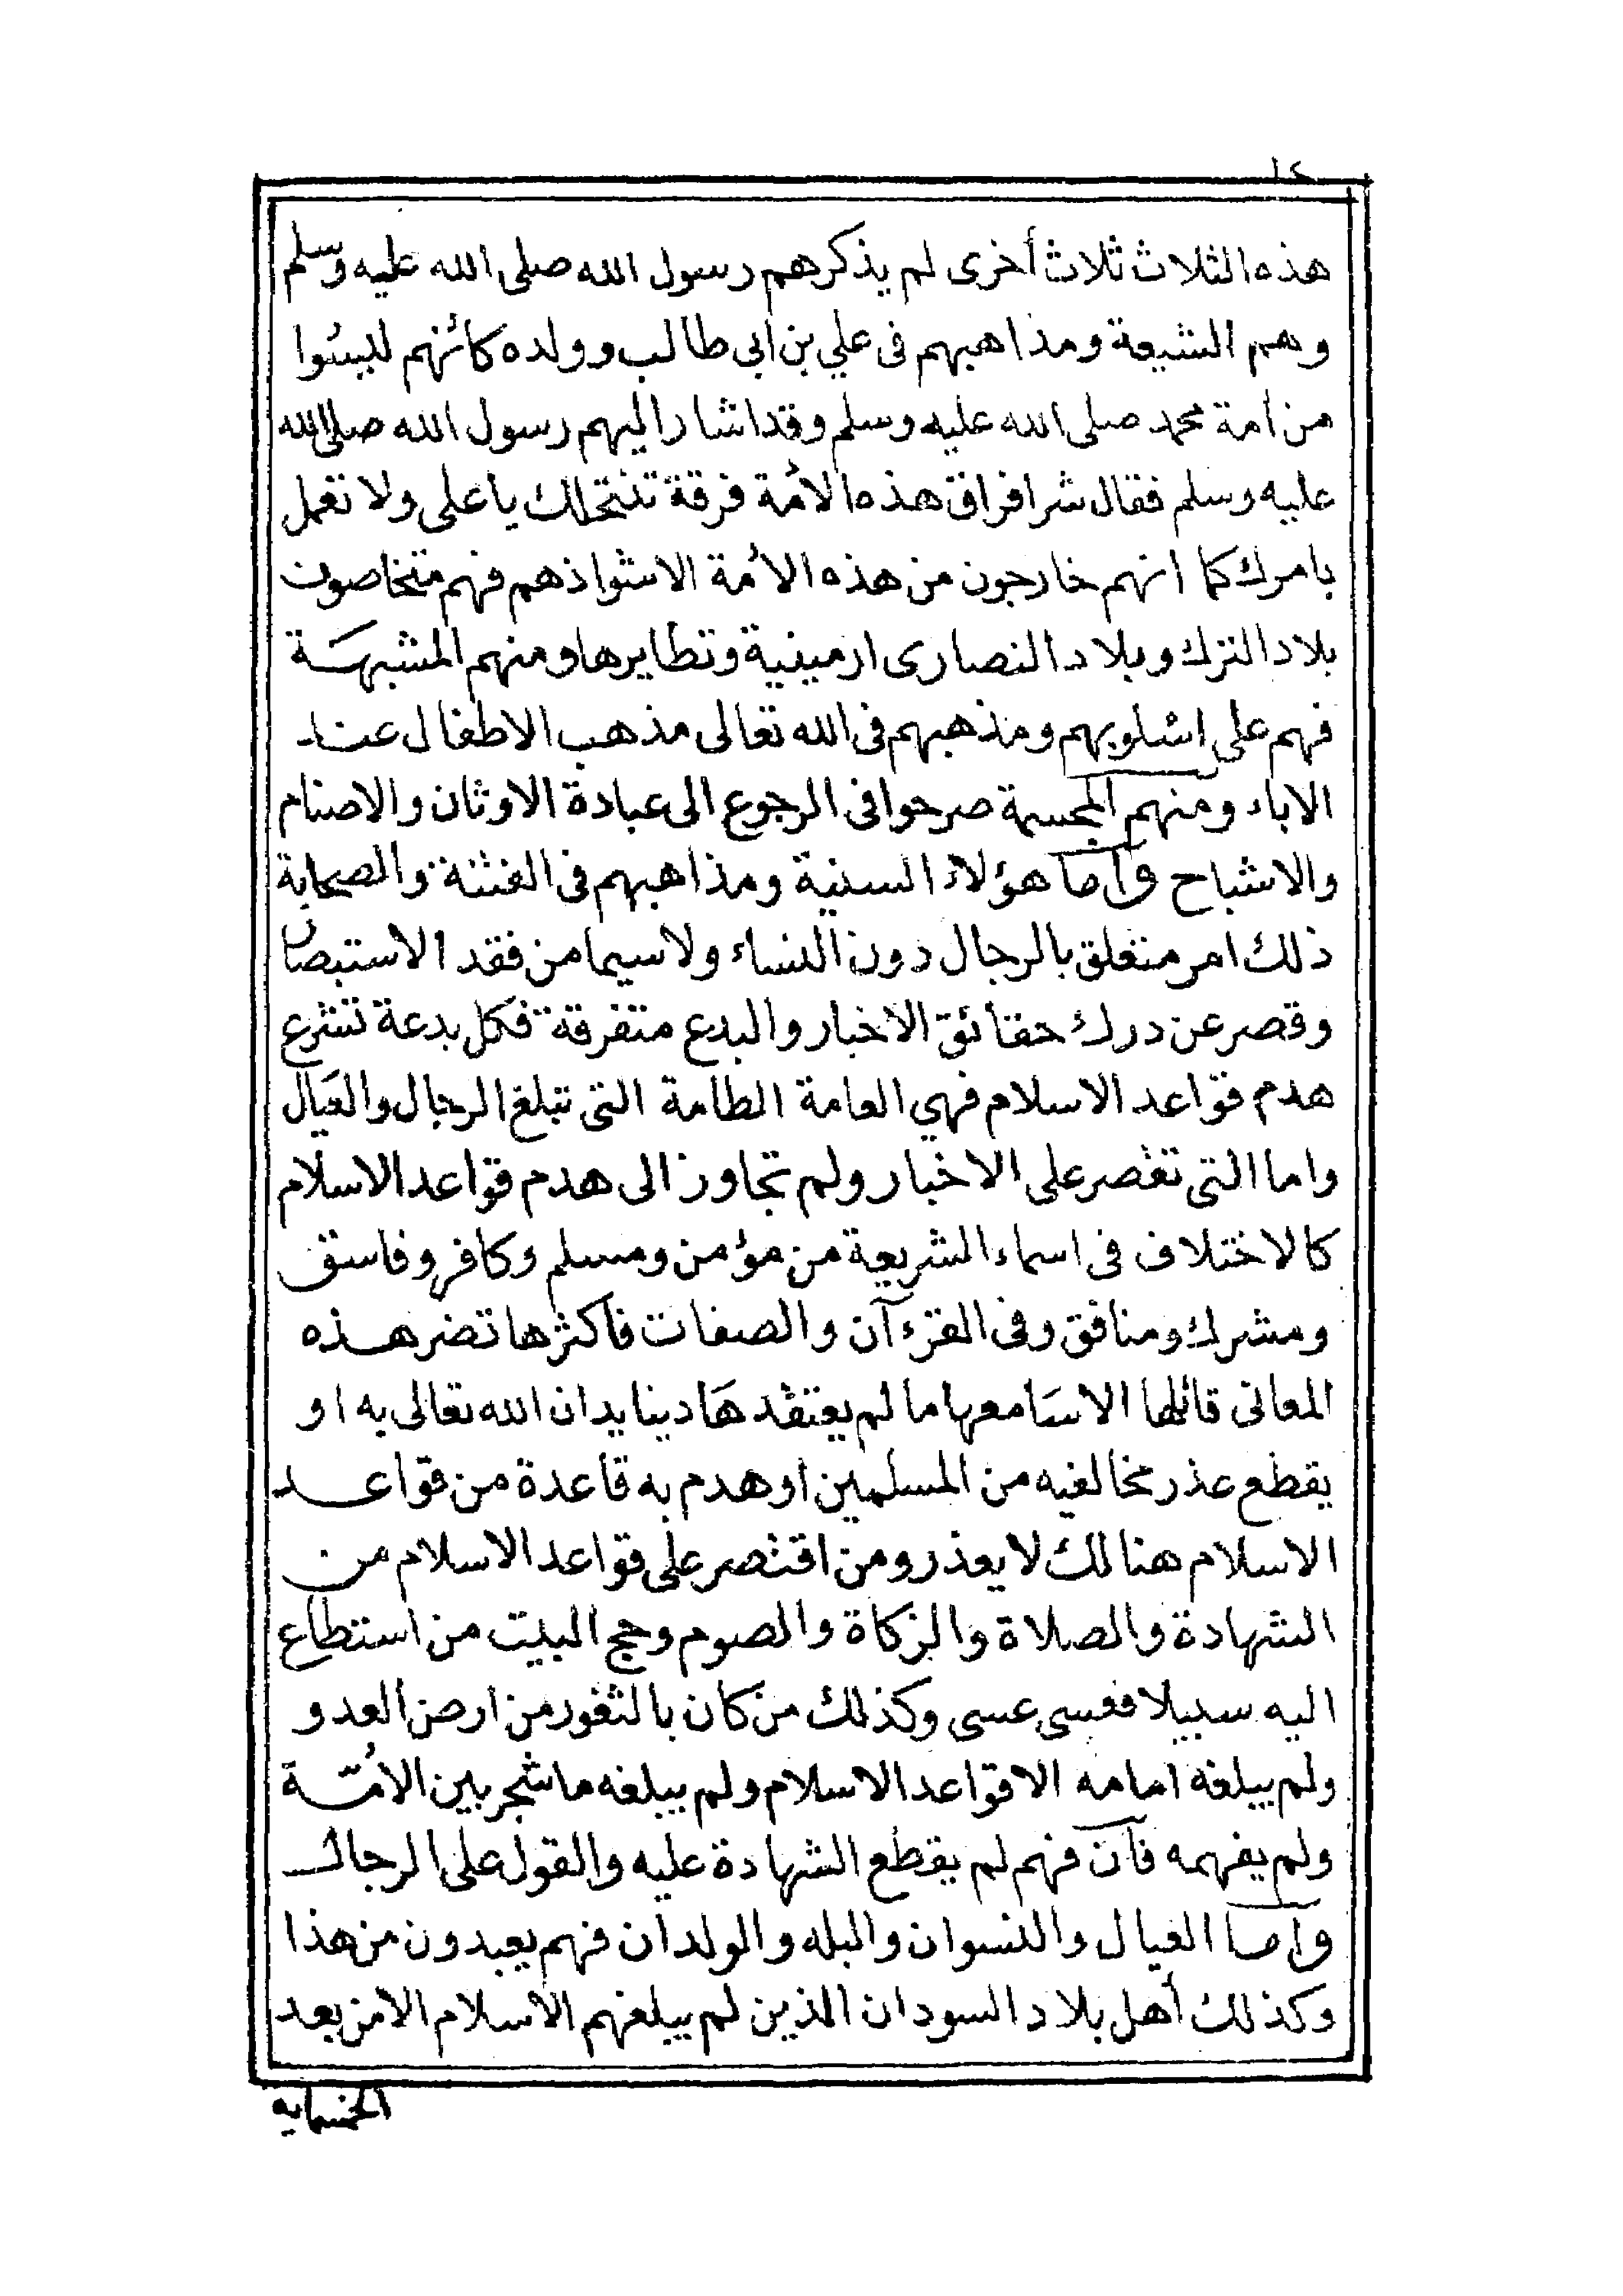 هذه الثلاث ثلاث أخرى لم يذكرهم رسول الله صلى الله عليه وسلم
وهم الشيعة ومذاهبهم فى علي بن ابى طالب وولده كأنهم ليسوا
من أمة محمد صلى الله عليه وسلم وقد اشار اليهم رسول الله صلى الله
عليه وسلم فقال شر افراق هذه الأمة فرقة تنتحلك يا على ولا تعمل
بامرك كما انهم خارجون من هذه الأمة الا شواذهم فهم متخاصون
بلاد الترك وبلاد النصارى ارمينية وتطايرها ومنهم المشبهة
فهم على اسلوبهم ومذهبهم فى الله تعالى مذهب الاطفال عند
الاباء ومنهم المجسمة صرحوا فى الرجوع الى عبادة الاوثان والاصنام
والاشباح وأما هؤلاء السنية ومذاهبهم فى الفتنة والصحابة
ذلك امر متعلق بالرجال دون النساء ولا سيما من فقد الاستبصار
وقصر عن درك حقائق الاخبار والبدع متفرقة فكل بدعة تشرع
هدم قواعد الاسلام فهي العامة الطامة التى تبلغ الرجال والعيال
واما التى تقصر على الاخبار ولم تجاوز الى هدم قواعد الاسلام
كالاختلاف فى اسماء الشريعة من مؤمن ومسلم وكافر وفاسق
ومشرك ومنافق وفى القرءآن والصفات فأكثرها تضر هذه
المعانى قائلها الاسامعها ما لم يعتقد هادينا يدان الله تعالى به او
يقطع عذر مخالفيه من المسلمين او هدم به قاعدة من قواعد
الاسلام هنالك لا يعذر ومن اقتصر على قواعد الاسلام من
الشهادة والصلاة والزكاة والصوم وحج البيت من استطاع
اليه سبيلا فعسى عسى وكذلك من كان بالثغور من ارض العدو
ولم يبلغه امامه الا قواعد الاسلام ولم يبلغه ما شجر بين الأمة
ولم يفهمه فآن فهم لم يقطع الشهادة عليه والقول على الرجال
وأما العيال والنسوان والبله والولدان فهم يعبدون من هذا
وكذلك أهل بلاد السودان الذين لم يبلغهم الاسلام الا من بعد
الخمسمايه